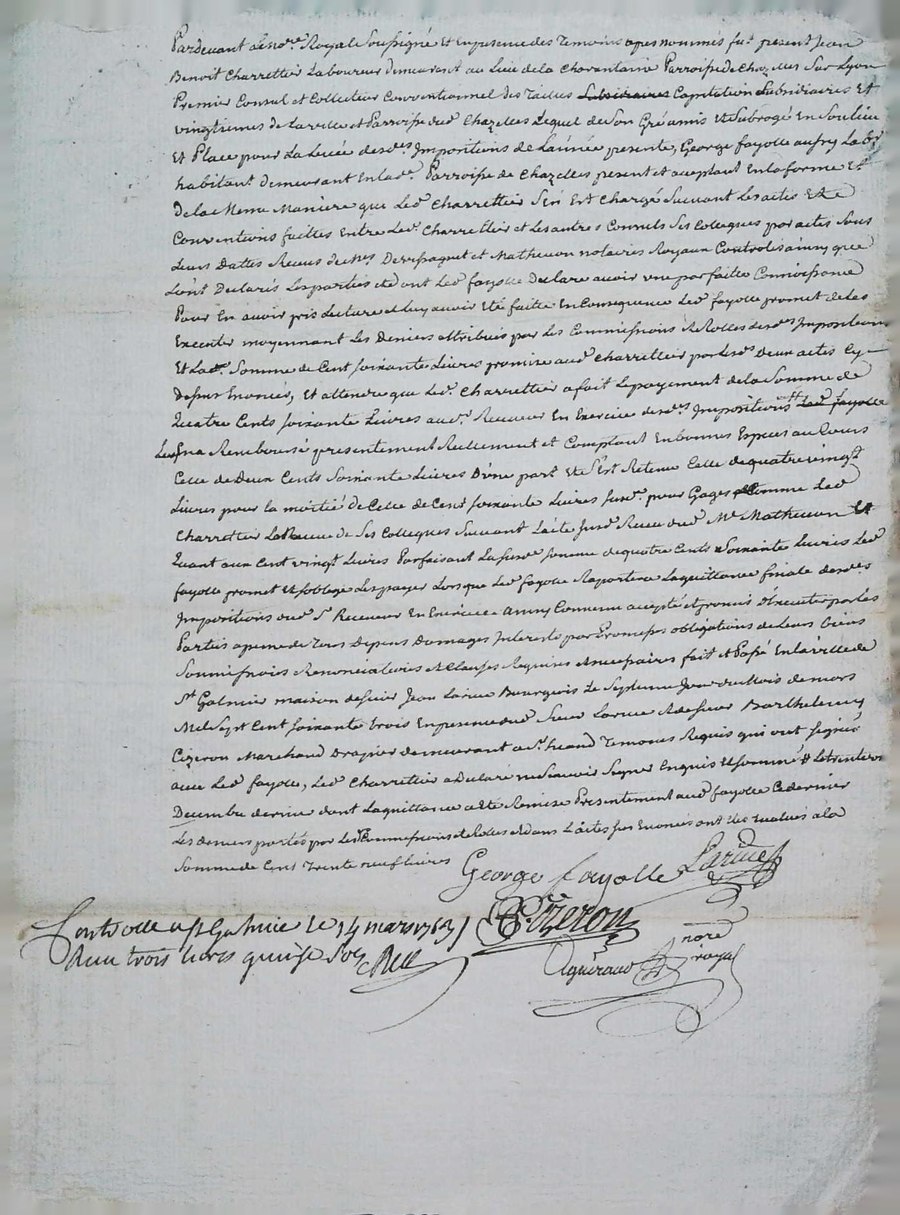 Pardevant Le no.re Royal Soussigné Et En presence des Temoins apres nommés fut present Jean
Benoit Charrettier Laboureur demeurant au Lieu de la Charentaine Parroisse de Chazelles Sur Lyon
Premier Consul et Collecteur Conventionnel des Tailles Capitation Subsidiaires Et
vingtiemes de La ville et Parroisse dud. Chazelles Lequel de Son Gré a mis Et Subrogé En Son Lieu
Et Place pour La Levée desd.es Impositions de L'année presente, George fayolle aussy Lab.r
habitant Demeurant En lad.e Parroisse de Chazelles present et aceptant En la forme Et
De la Meme Maniere que Led. Charrettier S'en Est Chargé Suivant Les actes Et
Conventions faittes Entre Led. Charrettier et Les autres Consuls Ses Collegues par actes Sous
Leurs Dattes Recus de M.es et Mathevon notaires Royaux Controlés ainsy que
L'ont Declarés Les parties et dont Led. fayolle Declare avoir une parfaitte Connoissance
Pour En avoir pris Lecture et Luy avoir Eté faitte En Consequence Led. fayolle promet de Les
Executer moyennant Les Deniers attribués par Les Commissions Et Rolles desd.es Impositions
Et Lad.e Somme de Cent soixante Livres promise aud. Charrettier par Lesd.s Deux actes Cy
Dessus Enoncés, Et attendu que Led. Charrettier a fait Le payement de La Somme de
Quatre Cents soixante Livres aud. Receveur En Exercice desd.es Impositions Led. fayolle
L'en a Remboursé presentement Reellement et Comptant En bonnes Especes au Cours
Celle de Deux Cents Soixante Livres D'une part Et S'est Retenu Celle de quatre vingt
Livres pour la moitié de Celle de Cent soixante Livres pour Gages Comme Led.
Charrettier de Ses Collegues Suivant L'acte Recu dud. M.e Mathevon Et
Quant aux Cent vingt Livres Parfaisant La Susd. somme de quatre Cents Soixante Livres Led.
fayolle promet Et s'oblige Les payer Lorsque Led. fayolle Raportera La quittance finale desd.es
Impositions dud. S.r Receveur En Exercice Ainsy Convenu accepté et promis d'Executer par Les
Parties a peine de Tous Depens Domages Interests par Promesses obligations de Leurs biens
Soumissions Renonciations et Clauses Requises et necessaires fait et Passé En la ville de
S.t Galmier maison de sieur Jean Larue Bourgeois Le Septieme Jour du Mois de mars
Mil Sept Cent soixante trois En presence dud. Sieur Larue et de sieur Barthelemy
Cizeron Marchand Drapier demeurant aud. Temoins Requis qui ont signés
avec Led. fayolle, Led. Charrettier a Declaré ne Scavoir Signer Enquis Et Sommé Le trente un
Decembre dernier dont La quittance a Eté Remise Presentement aud. fayolle Ce dernier
Les deniers portés par Les Commissions de Rolles et dans L'actes sus Enoncés ont été Evalués a la
Somme de Cent Trente neuf Livres
George fayolle Larue
Cizeron
no.re
royal
Controllé a St Galmier le 14 mars 1763
Recu trois livres quinze sols